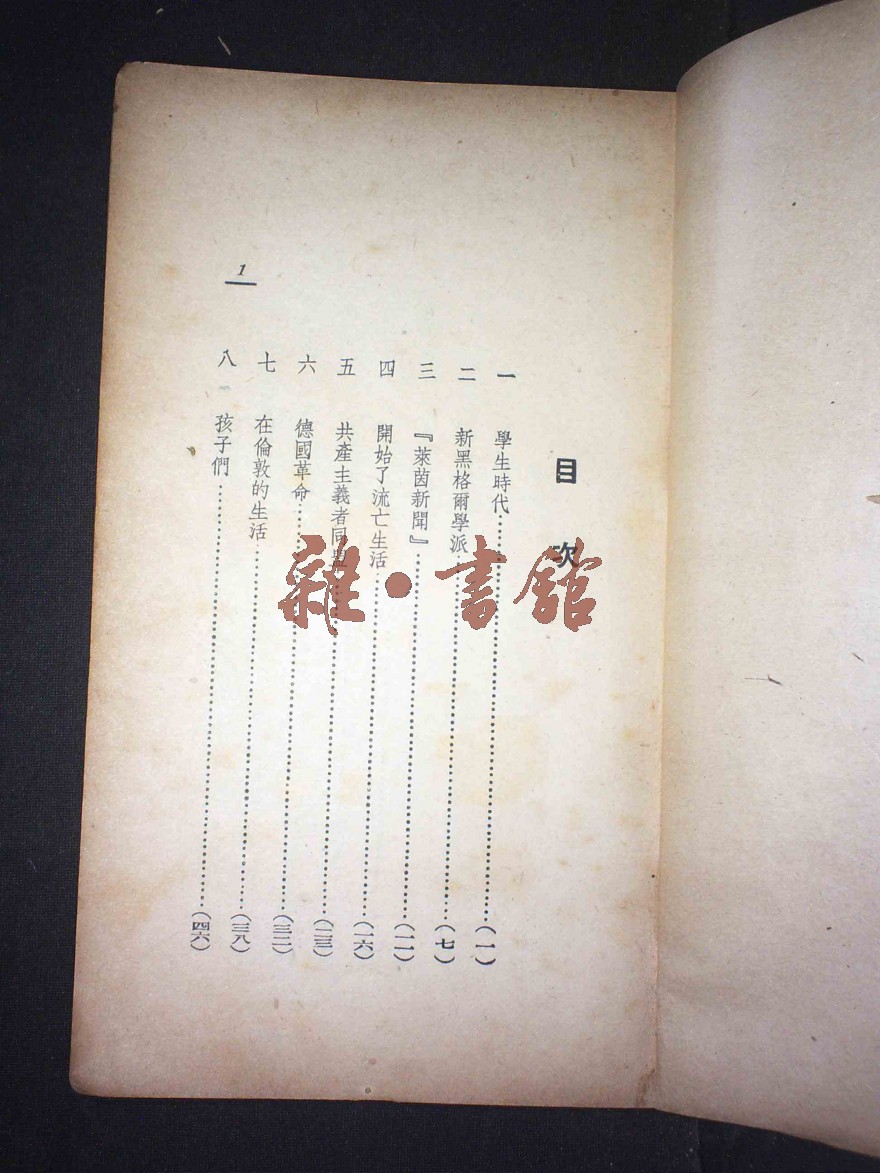 目次
一 學生時代 (一)
二 新黑格爾學派 (七)
三 『萊茵新聞』 (一一)
四 開始了流亡生活 (一六)
五 共產主義者同盟 (二三)
六 德國革命 (三二)
七 在倫敦的生活 (三八)
八 孩子們 (四六)
1
雜·書館